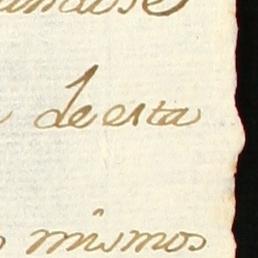 de esta
mismos